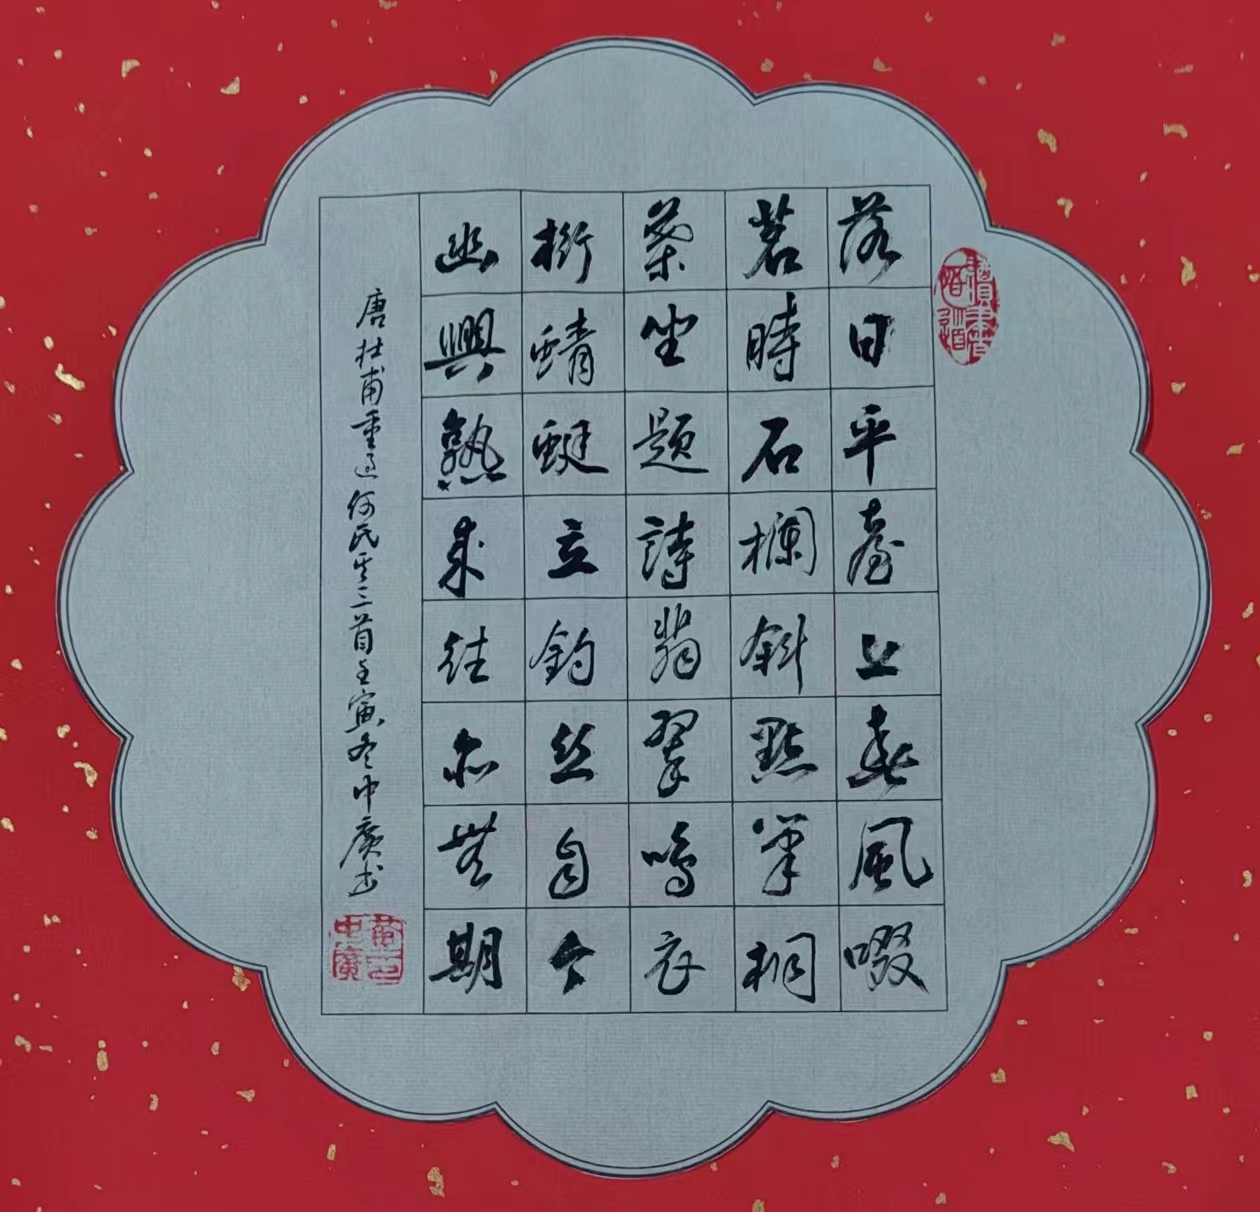 落日平臺上春風啜
茗時石欄斜點筆桐
葉坐題詩翡翠鳴衣
桁蜻蜓立釣絲自今
幽興熟來往亦無期
唐杜甫重過何氏其三首壬寅冬中廣書